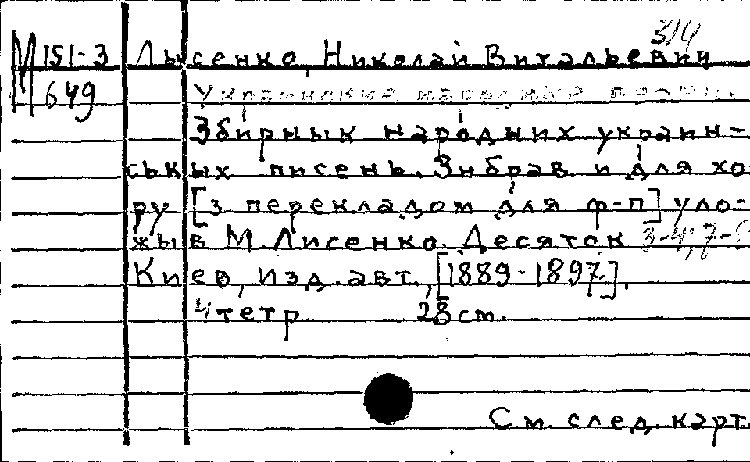 314
М 151-3 Лысенко, Николай Витальевич
649 Украинские народные песни.
Збирнык народних украин-
ськых писень. Зибрав и для хо-
ру [з перекладом для ф-п] уло-
жыв М. Лисенко. Десяток 3-4; 7-
Киев, изд. авт., [1889-1897].
4 тетр 28 см.
См. след. карт.